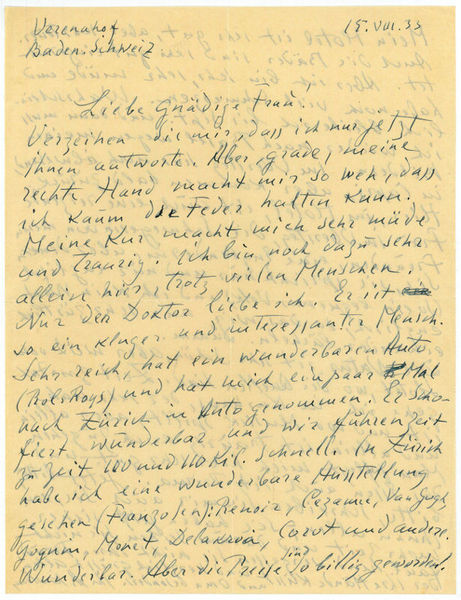 Verenahof
Baden. Schweiz
15. VIII. 33
Liebe Gnädige Frau.
Verzeihen die mir, dass ich nur jetzt
Ihnen antworte. Aber, grade, meine
rechte Hand macht mir so weh, dass
ich kaum die Feder halten kann.
Meine Kur macht mich sehr müde
und traurig. Ich bin noch dazu sehr
allein hier, trotz vielen Menschen.
Nur den Doktor liebe ich. Er ist
so ein kluger und interessanter Mensch.
Sehr reich, hat ein wunderbaren Auto
(Rols Roys) und hat mich ein paar Mal
nach Zürich in Auto genommen. Er scho-
fiert wunderbar und wir fuhren Zeit
zu Zeit 100 und 110 Kil. schnell. In Zürich
habe ich eine wunderbare Ausstellung
gesehen (Franzosen): Renoir, Cezanne, Van Gogh
Gognin, Monet, Delakroá, Corot und andere.
Wunderbar. Aber die Preise sind so billig geworden!